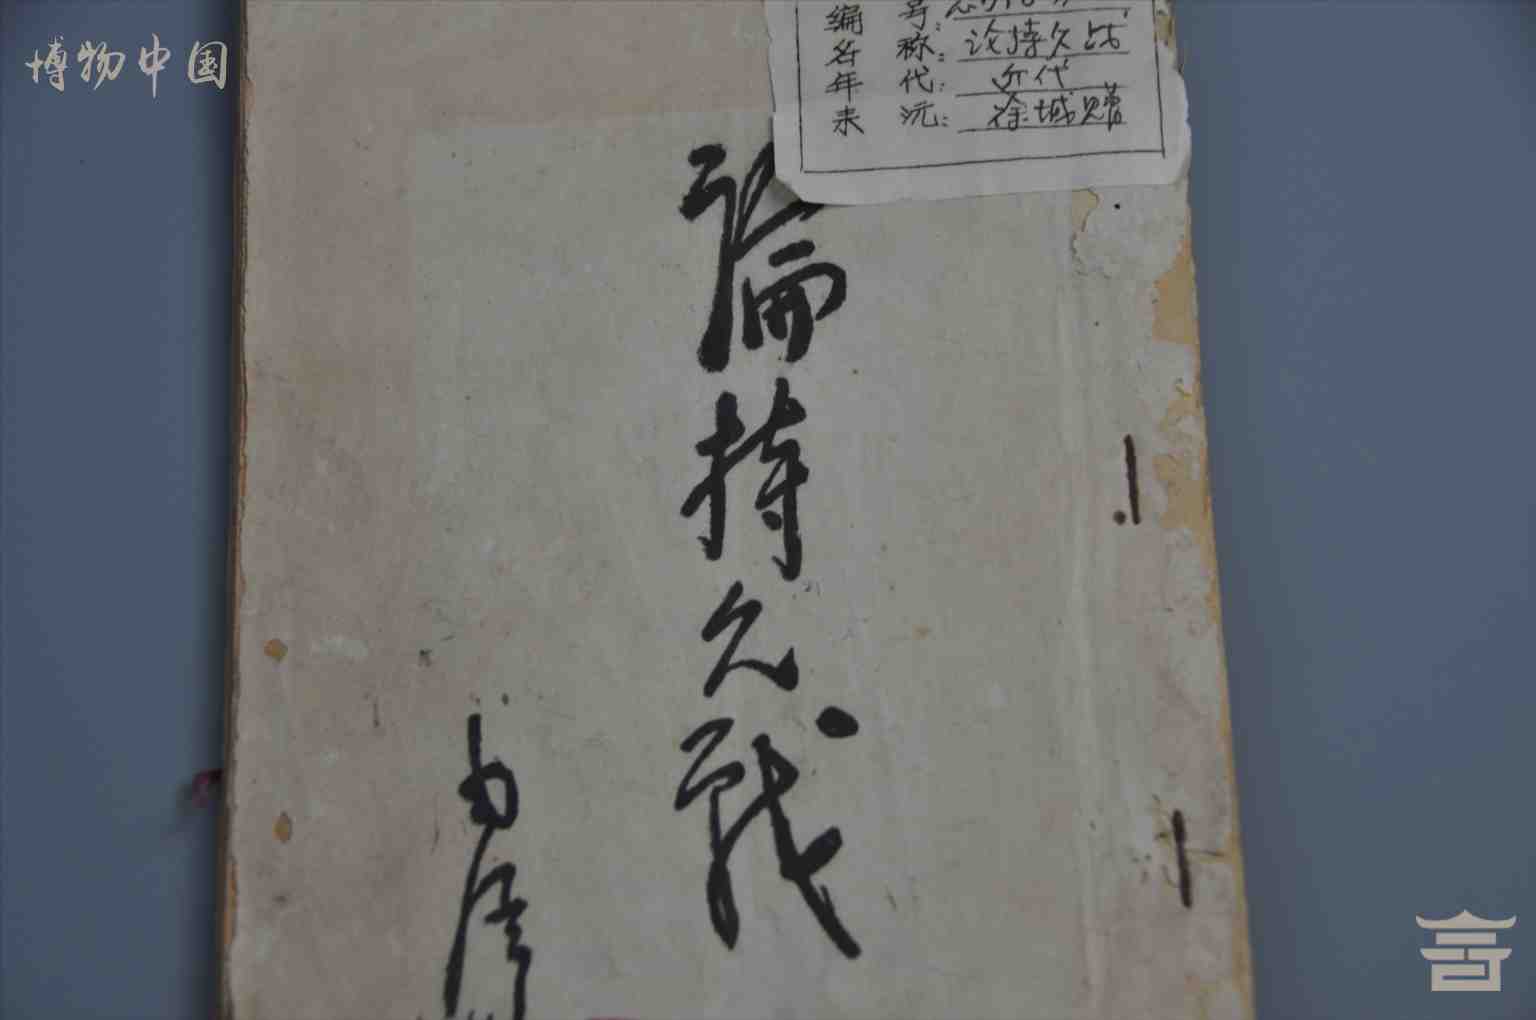 博物中国
编 号:
名 称: 论持久战
年 代: 近代
来 沅: 徐城赠
論持久战